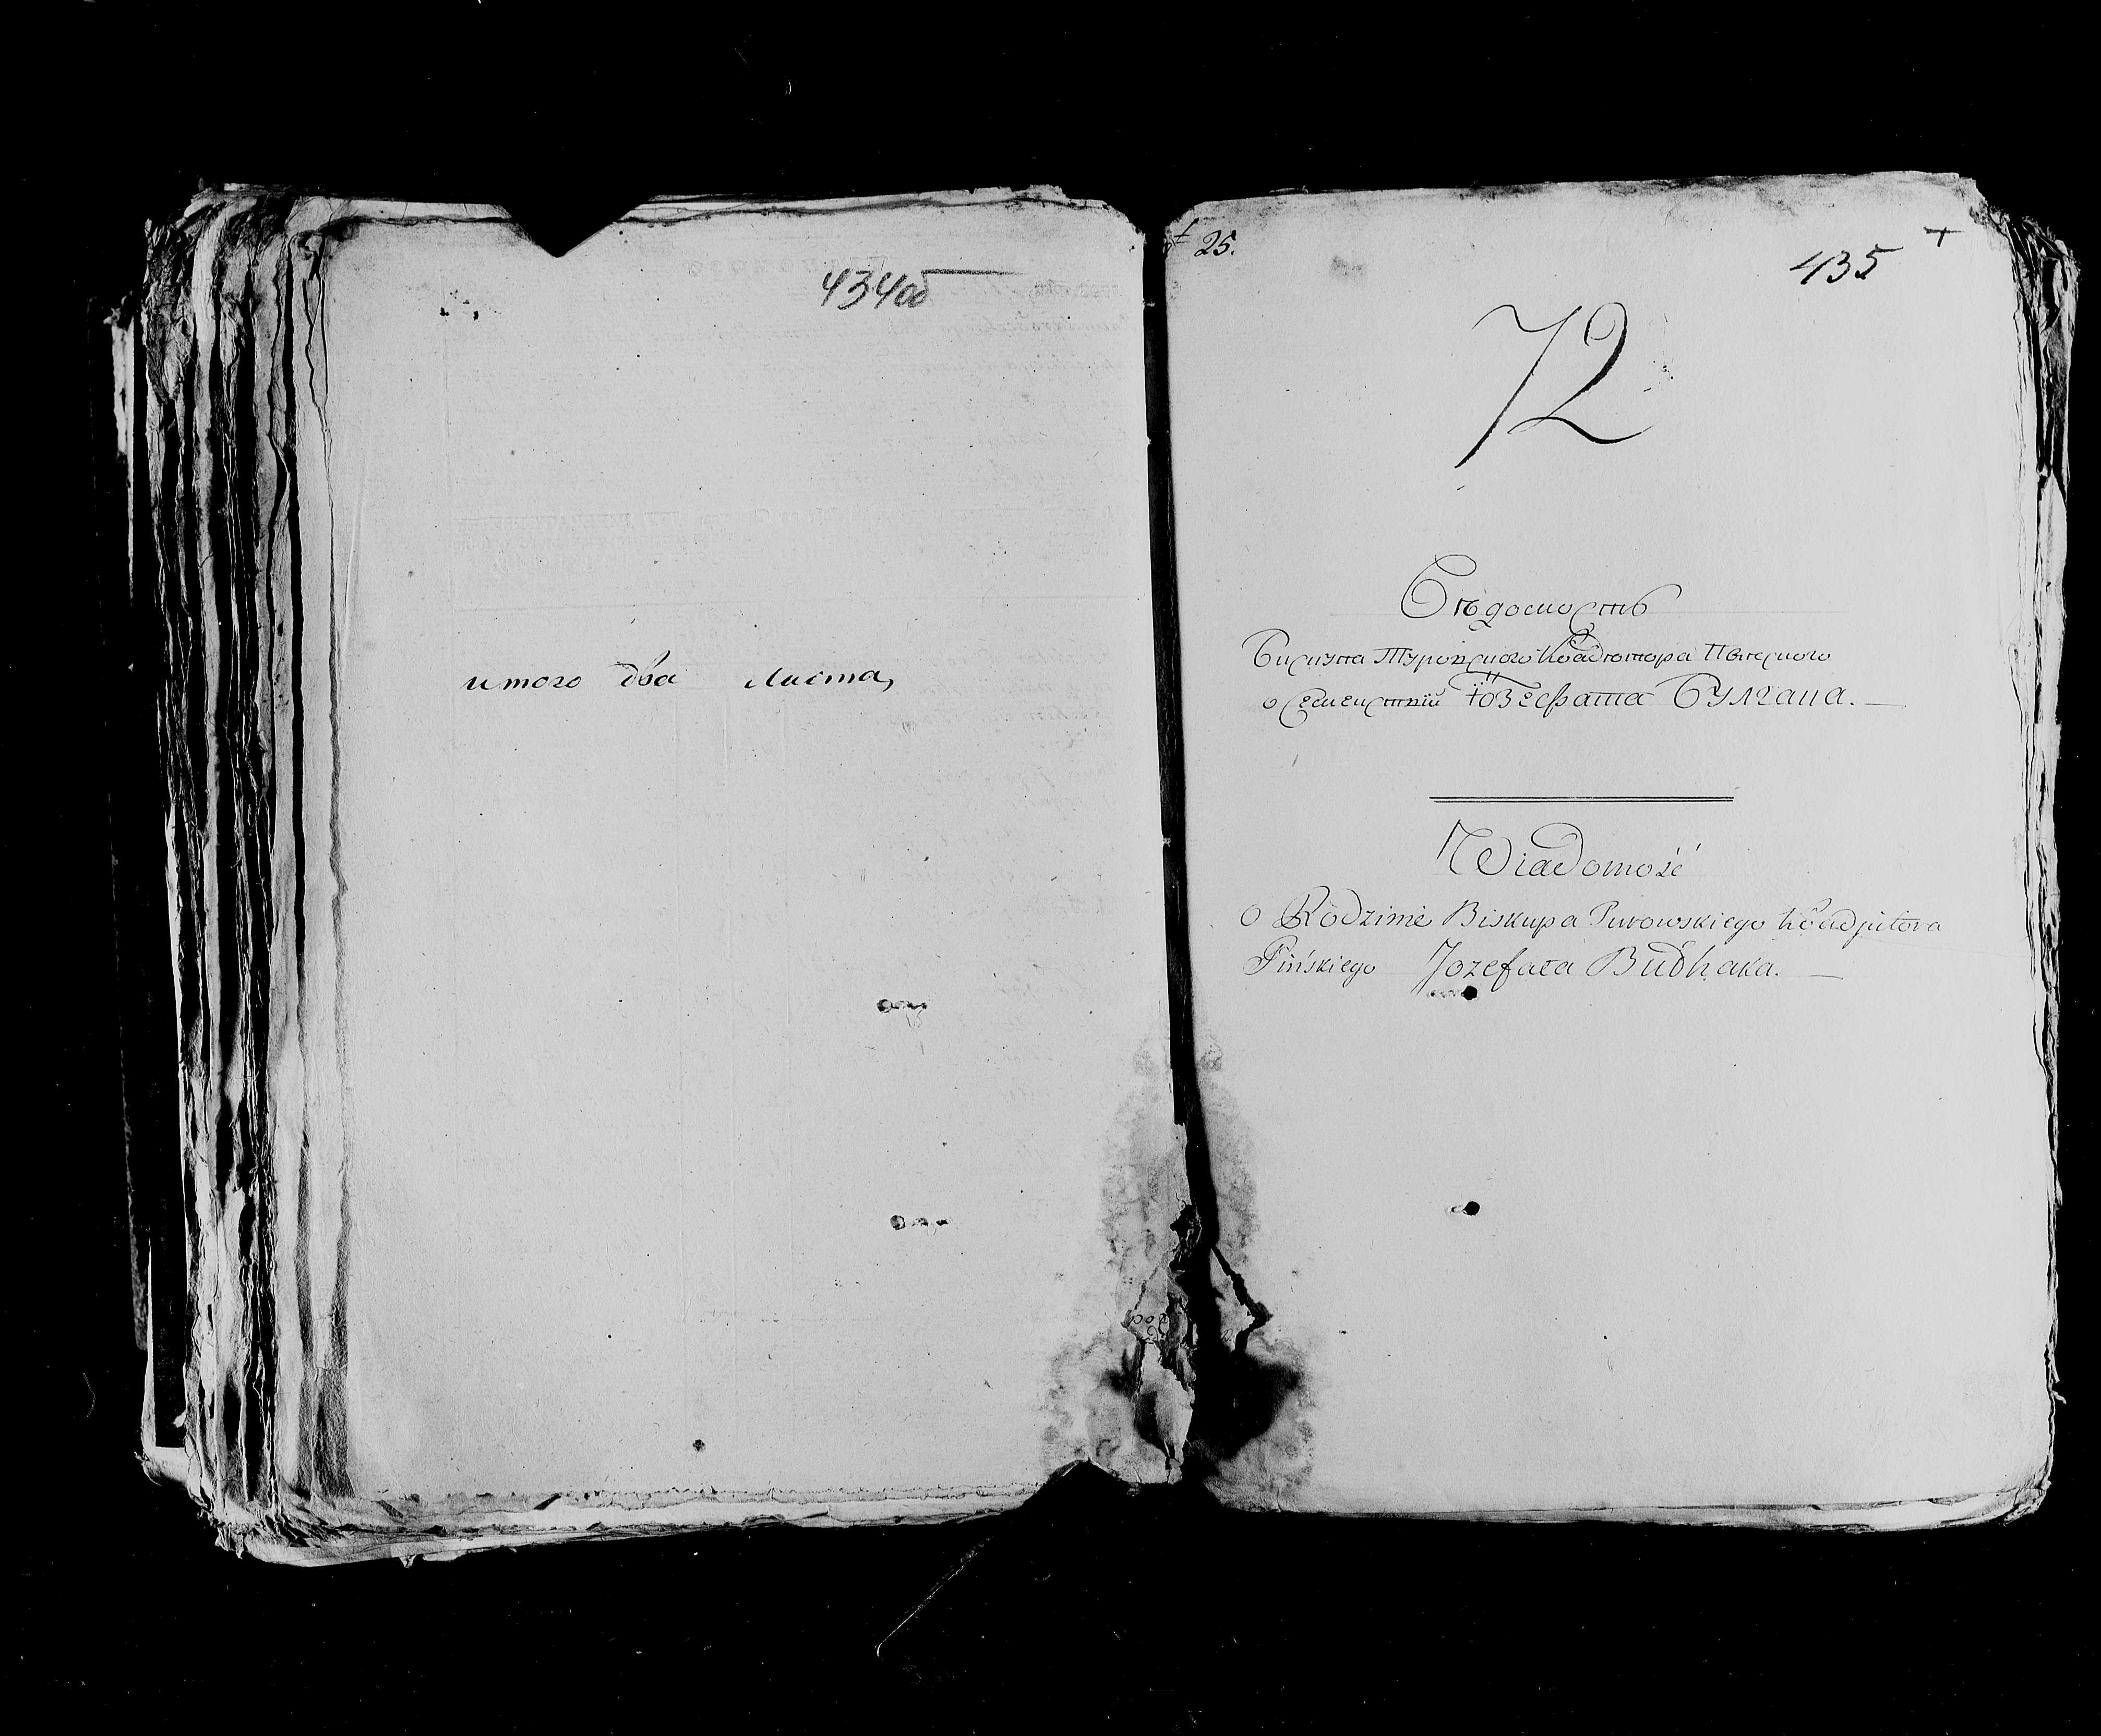 434об
итого два листа,
25.
435
72
Вѣдомость
Бискупа Туровского Коадютора Пинского
о Семействѣ Іозефата Булгака.
Wiadomość
O Rodzinie Biskupa Turowskiego Koadjutora
Pińskiego Jozefata Bułhaka.